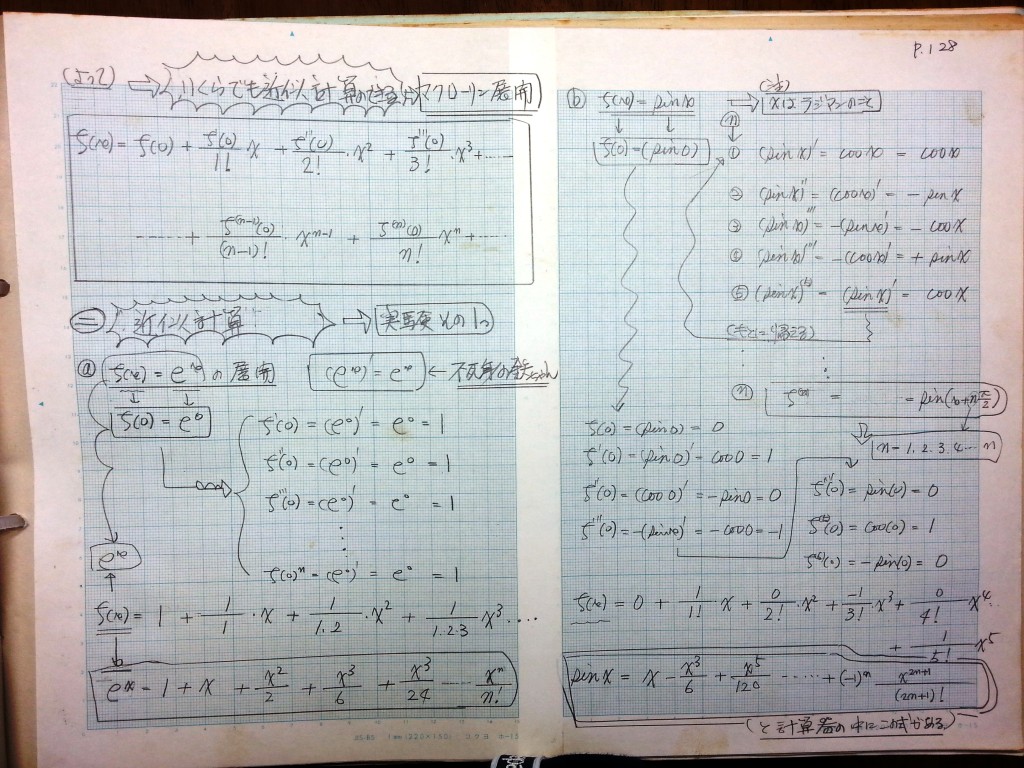 p.128
(よって) ⇒ いくらでも近似計算の出来るマクローリン展開
f(x) = f(0) + f'(0)/1! x + f''(0)/2! ·x² + f'''(0)/3! ·x³ + ……
…… + f⁽ⁿ⁻¹⁾(0)/(n-1)! · xⁿ⁻¹ + f⁽ⁿ⁾(0)/n! xⁿ + ……
㊁ 近似計算 ⇒ 実験その1つ
ⓐ f(x) = eˣ の展開 (eˣ)' = eˣ ←
f(0) = e⁰
f'(0) = (e⁰)' = e⁰ = 1
f''(0) = (e⁰)' = e⁰ = 1
f'''(0) = (e⁰)' = e⁰ = 1
⋮
f(0)ⁿ = (e⁰)' = e⁰ = 1
eˣ
f(x) = 1 + 1/1 ·x + 1/1.2 ·x² + 1/1.2.3 x³ ....
eˣ = 1 + x + x²/2 + x³/6 + x³/24 …… xⁿ/n!
ⓑ f(x) = sin x ⇒ (注) xはラジアンのこと
f(0) = (sin 0)
ⓝ
① (sin x)' = cos x = cos x
② (sin x)'' = (cos x)' = - sin x
③ (sin x)''' = -(sin x)' = - cos x
④ (sin x)'''' = -(cos x)' = + sin x
⑤ (sin x)⁽⁵⁾ = (sin x)' = cos x
(もとに帰る)
⋮
ⓝ f⁽ⁿ⁾ = = sin(x + n π/2)
n = 1.2.3.4.… n
f(0) = (sin 0) = 0
f'(0) = (sin 0)' = cos 0 = 1
f''(0) = (cos 0)' = -sin 0 = 0
f'''(0) = -(sin 0)' = -cos 0 = -1
f''''(0) = sin(0) = 0
f⁽⁵⁾(0) = cos(0) = 1
f⁽⁶⁾(0) = -sin(0) = 0
f(x) = 0 + 1/1! x + 0/2! ·x² + -1/3! x³ + 0/4! x⁴
+ 1/5! x⁵
sin x = x - x³/6 + x⁵/120 …… + (-1)ⁿ x²ⁿ⁺¹/(2n+1)!
(と計算器の中にこの式がある)